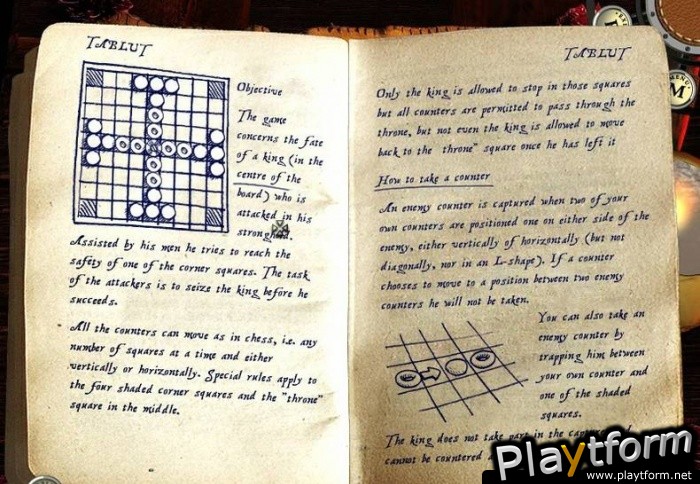 TABLUT
Objective
The game
concerns the fate
of a king (in the
centre of the
board) who is
attacked in his
Assisted by his men he tries to reach the
safety of one of the corner squares. The task
of the attackers is to seize the king before he
succeeds.
All the counters can move as in chess, i.e. any
number of squares at a time and either
vertically or horizontally. Special rules apply to
the four shaded corner squares and the "throne"
square in the middle.
TABLUT
Only the king is allowed to stop in those squares
but all counters are permitted to pass through the
throne, but not even the king is allowed to move
back to the throne" square once he has left it
How to take a counter
An enemy counter is captured when two of your
own counters are positioned one on either side of the
enemy, either vertically of horizontally (but not
diagonally, nor in an L-shape). If a counter
chooses to move to a position between two enemy
counters he will not be taken.
You can also take an
enemy counter by
trapping him between
your own counter and
one of the shaded
squares.
The king does not take part in the
cannot be countered
MENU
M
Playtform
www.playtform.net